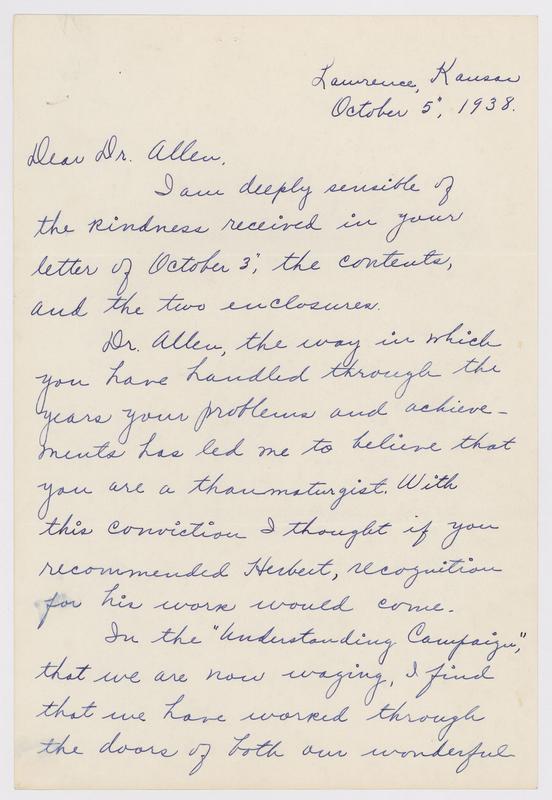 Lawrence, Kansas
October 5", 1938.
Dear Dr. Allen,
I am deeply sensible of
the kindness received in your
letter of October 3", the contents,
and the two enclosures.
Dr. Allen, the way in which
you have handled through the
years your problems and achieve-
ments has led me to believe that
you are a thaumaturgist. With
this conviction I thought if you
recommended Herbert, recognition
for his work would come.
In the "Understanding Campaign",
that we are now waging, I find
that we have worked through
the doors of both our wonderful